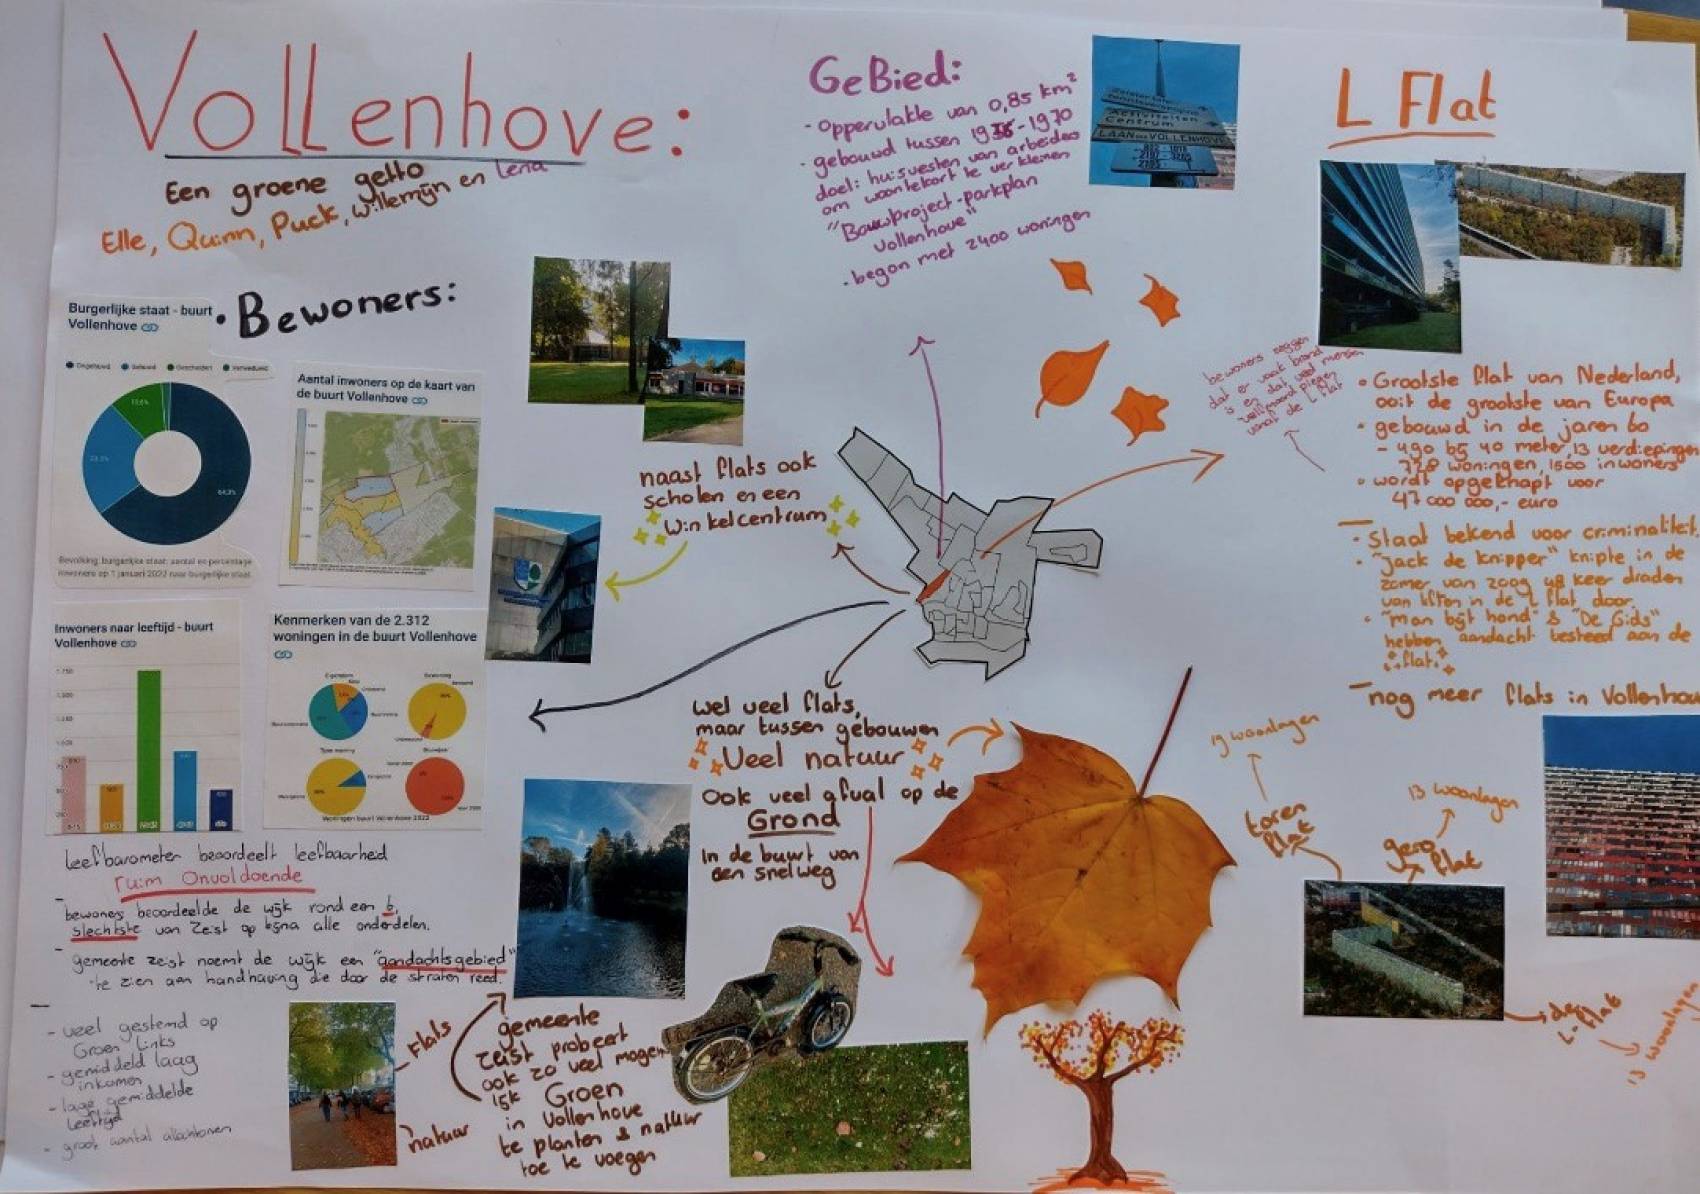 Vollenhove:
Een groene getto
Elle, Quinn, Puck, Willemijn en Lena
GeBied:
- oppervlakte van 0,85 km²
- gebouwd tussen 19 - 1970
doel: huisvesten van arbeiders
om woontekort te verkleinen
"Bouwproject-parkplan
Vollenhove"
- begon met 2400 woningen
Activiteiten
Centrum
LAAN van VOLLENHOVE
L Flat
bewoners zeggen
dat er vaak brand
is en dat veel mensen
zelfmoord plegen
vanaf de L flat
• Grootste flat van Nederland,
ooit de grootste van Europa
• gebouwd in de jaren 60
- 490 bij 40 meter, 13 verdiepingen
728 woningen, 1500 inwoners
• wordt opgeknapt voor
47 000 000,- euro
- Staat bekend voor criminaliteit.
• "Jack de Knipper" knipte in de
zomer van 2009 48 keer draden
van liften in de L flat door
• "man bijt hond" & "De Gids"
hebben aandacht besteed aan de
flat.
- nog meer flats in Vollenhove
19 woonlagen
toren
flat
13 woonlagen
gero
flat
de
L-flat
13 woonlagen
• Bewoners:
Burgerlijke staat - buurt
Vollenhove
Ongehuwd Gehuwd Gescheiden Verweduwd
Bevolking, burgerlijke staat: aantal en percentage
inwoners op 1 januari 2022 naar burgerlijke staat.
Aantal inwoners op de kaart van
de buurt Vollenhove
Inwoners naar leeftijd - buurt
Vollenhove
Kenmerken van de 2.312
woningen in de buurt Vollenhove
Woningen buurt Vollenhove 2022
naast flats ook
scholen en een
winkelcentrum
wel veel flats,
maar tussen gebouwen
Veel natuur
Ook veel afval op de
Grond
In de buurt van
een snelweg
leefbarometer beoordeelt leefbaarheid
ruim Onvoldoende
- bewoners beoordeelde de wijk rond een 6,
slechtste van Zeist op bijna alle onderdelen.
- gemeente zeist noemt de wijk een "aandachtsgebied"
te zien aan handhaving die door de straten reed.
- veel gestemd op
Groen Links
- gemiddeld laag
inkomen
- lage gemiddelde
leeftijd
- groot aantal allochtonen
flats
natuur
gemeente
zeist probeert
ook zo veel mogen
Groen
in Vollenhove
te planten & natuur
toe te voegen